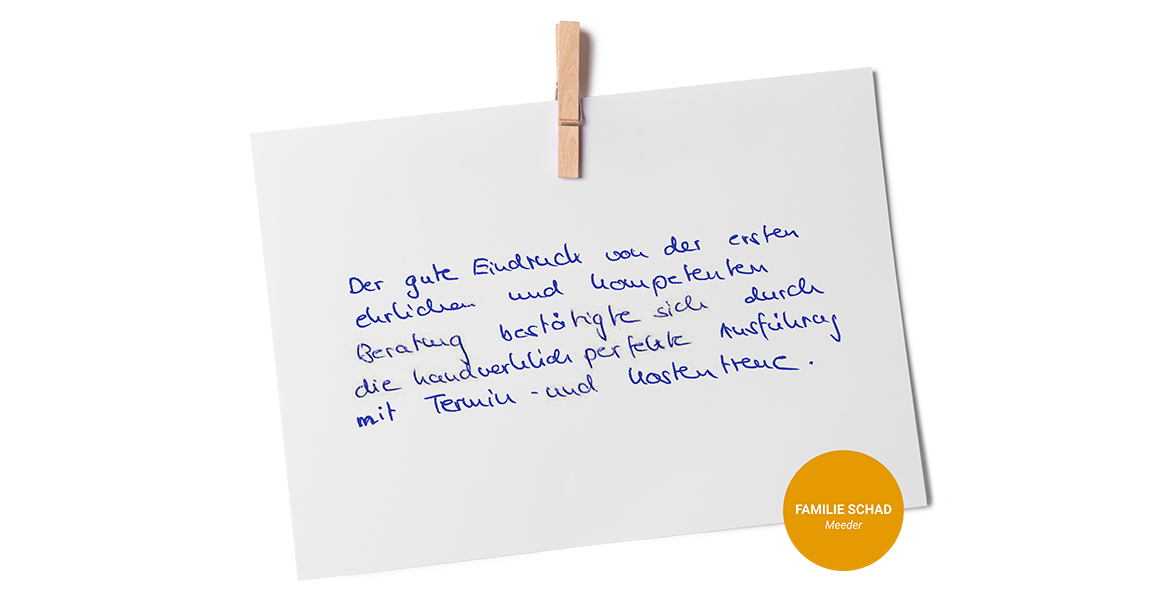 Der gute Eindruck von der ersten
ehrlichen und kompetenten
Beratung bestätigte sich durch
die handwerklich perfekte Ausführung
mit Termin- und Kostentreue.
FAMILIE SCHAD
Meeder